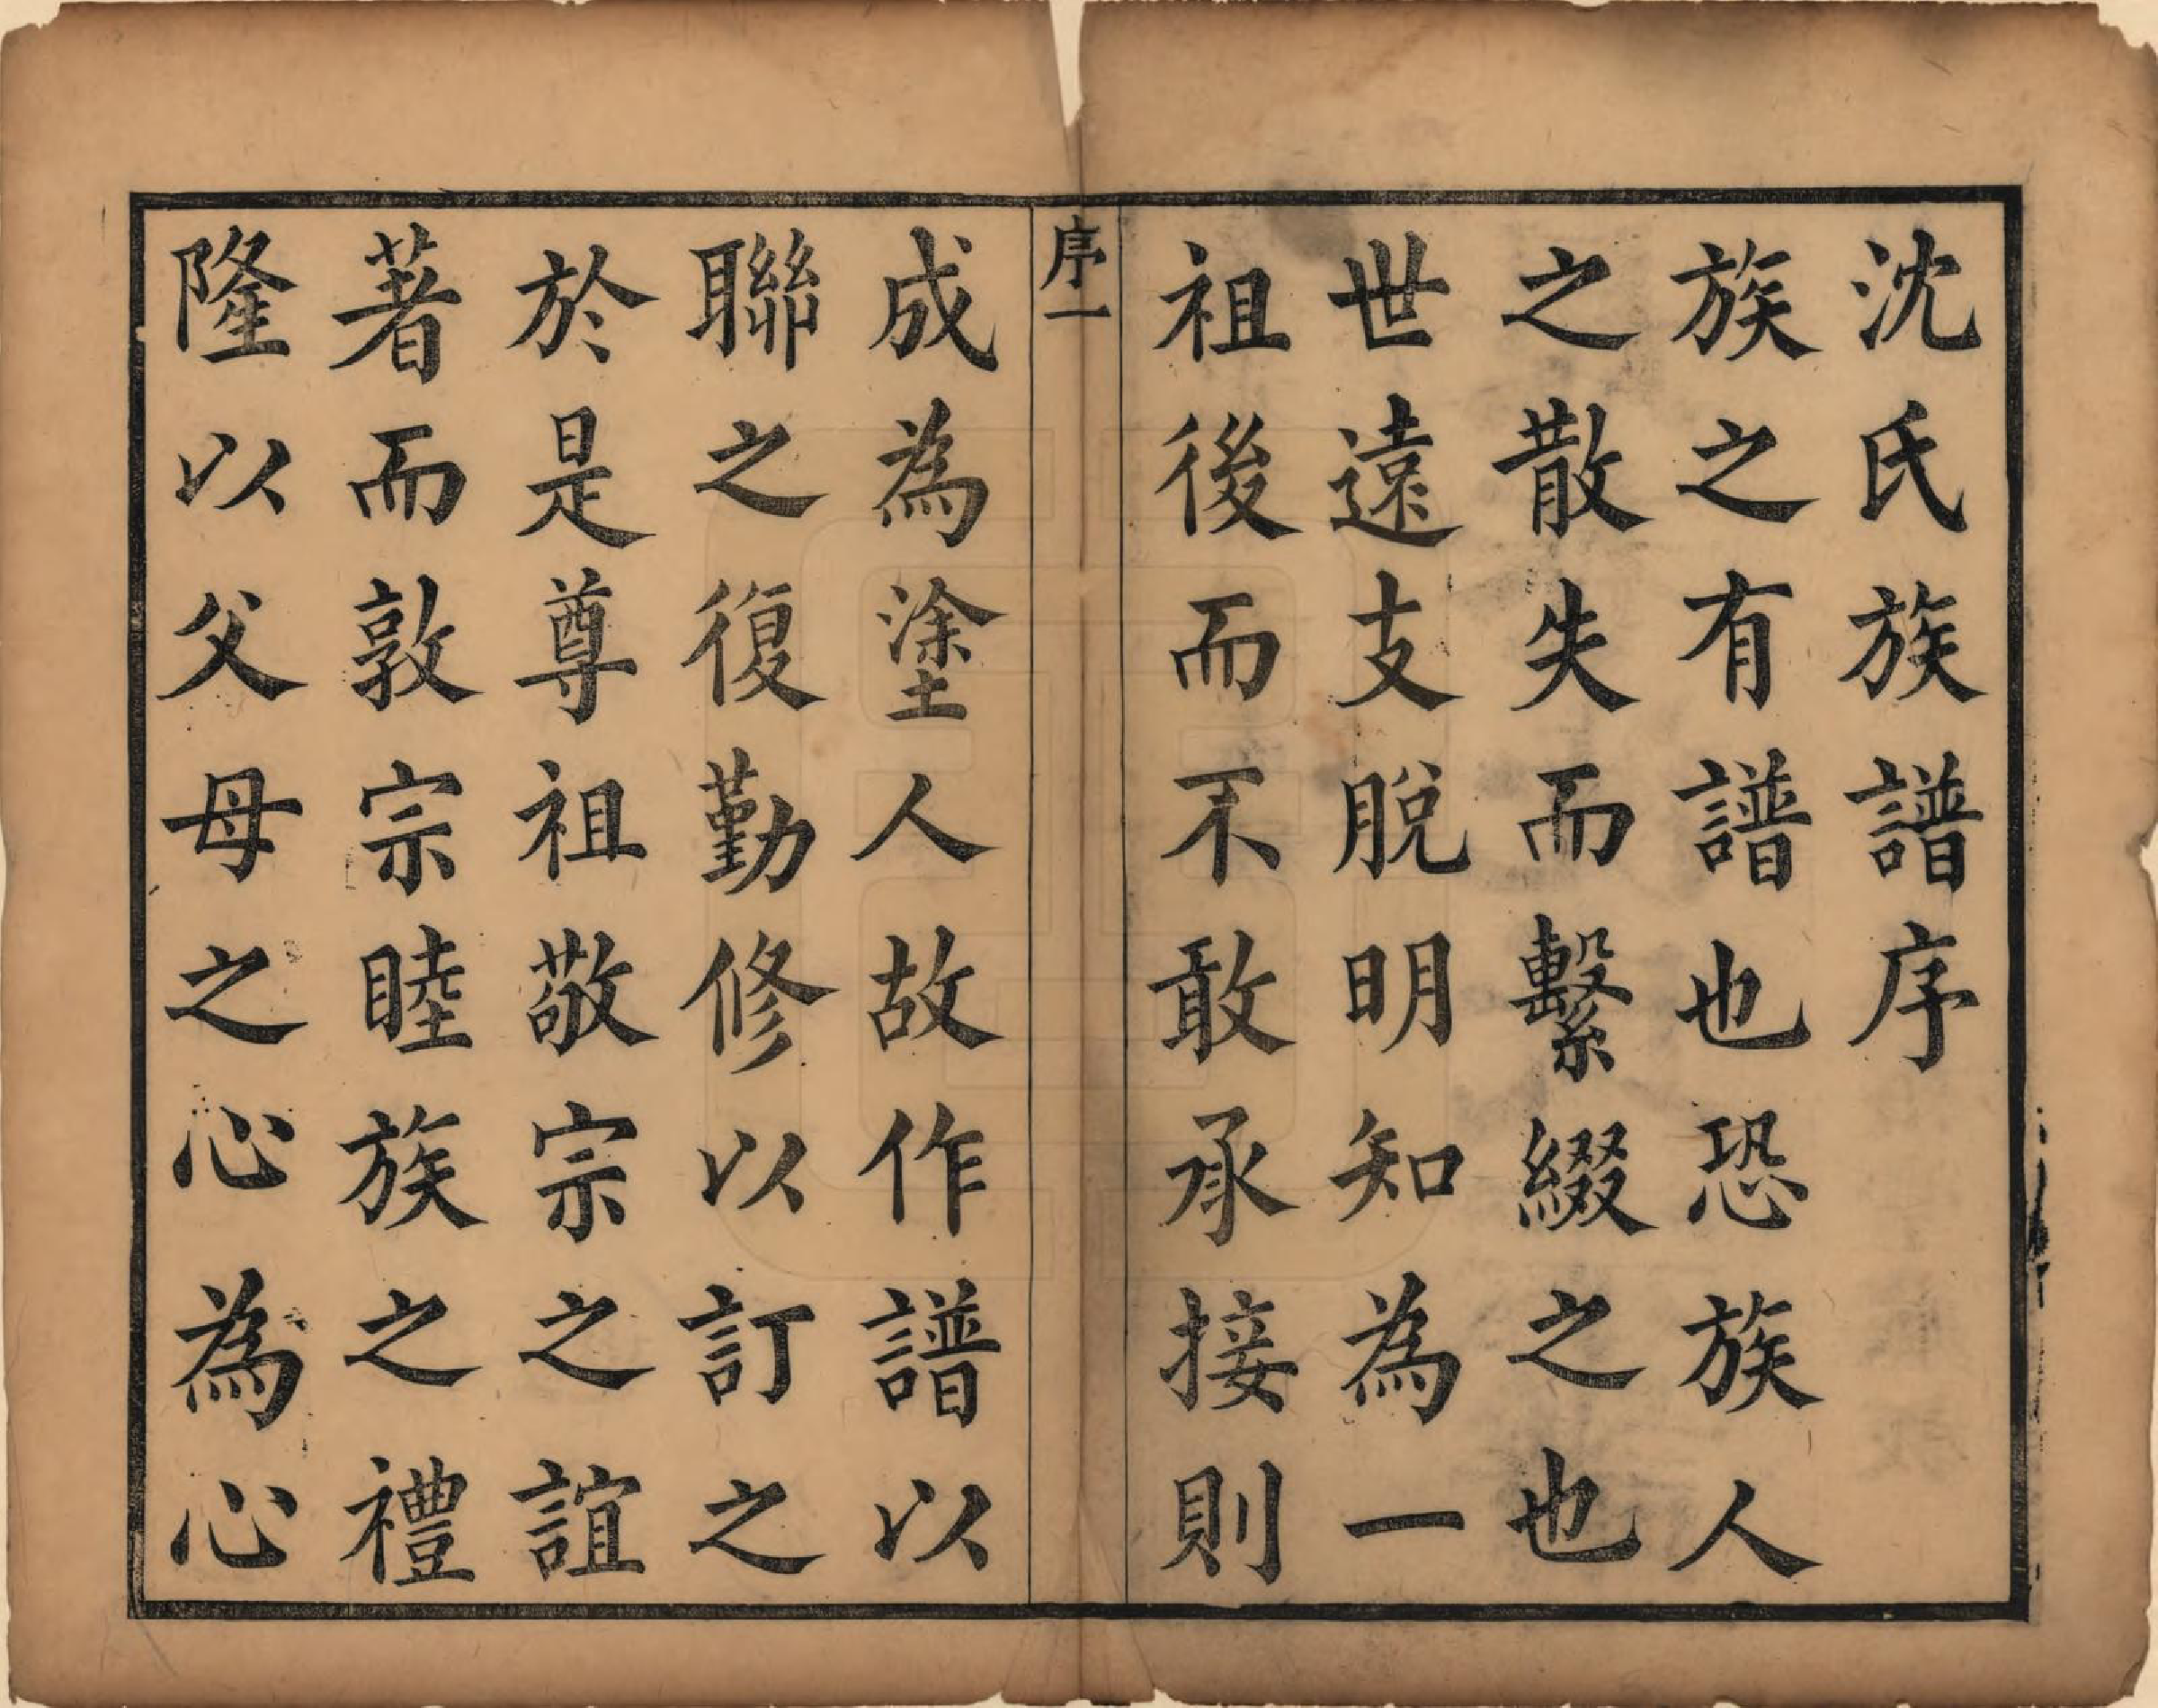 沈氏族譜序
族之有譜也恐族人
之散失而繫綴之也
世遠支脫明知為一
祖後而不敢承接則
序一
成為塗人故作譜以
聯之復勤修以訂之
於是尊祖敬宗之誼
著而敦宗睦族之禮
隆以父母之心為心